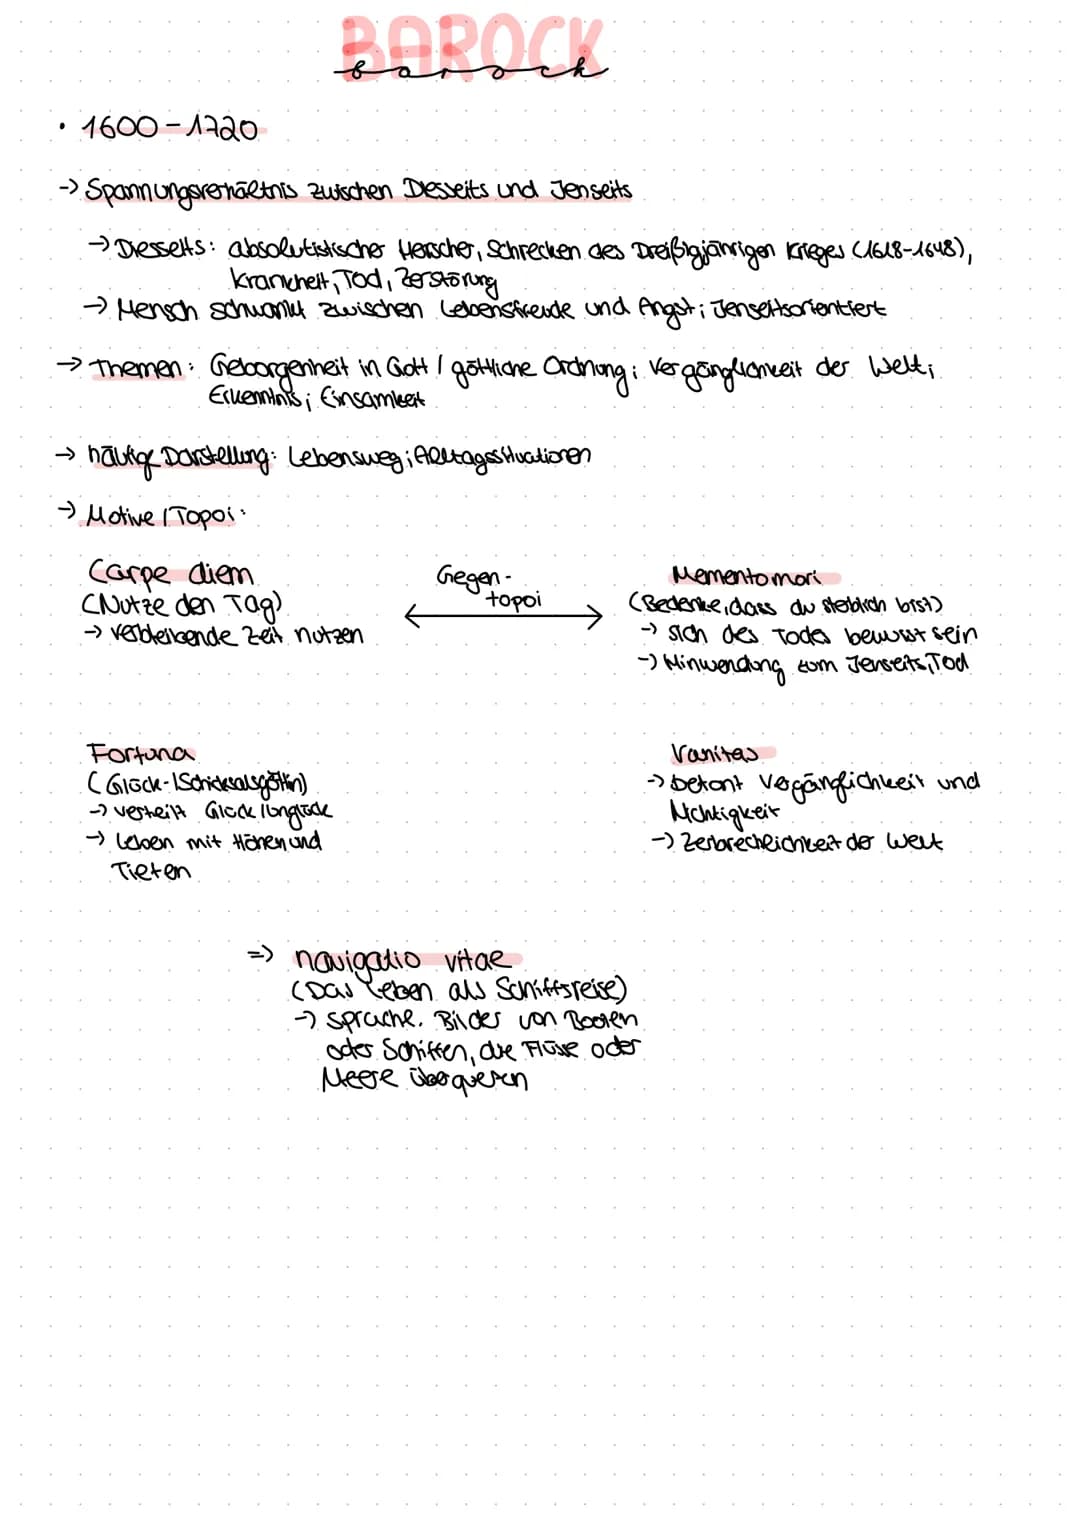 BAROCK
barock
• 1600-1720
-> Spannungsverhältnis zwischen Diesseits und Jenseits
-> Diesseits: absolutistischer Herrscher, Schrecken des Dreißigjährigen Krieges (1618-1648),
Krankheit, Tod, Zerstörung
-> Mensch schwankt zwischen Lebensfreude und Angst; Jenseitsorientiert
-> Themen: Geborgenheit in Gott / göttliche Ordnung; Vergänglichkeit der Welt;
Erkenntnis; Einsamkeit
-> häufige Darstellung: Lebensweg; Alltagssituationen
-> Motive / Topoi:
Carpe diem
(Nutze den Tag)
-> verbleibende Zeit nutzen
Gegen-
topoi
Memento mori
(Bedenke, dass du sterblich bist)
-> sich des Todes bewusst sein
-> Hinwendung zum Jenseits, Tod
Fortuna
(Glück-/Schicksalsgöttin)
-> verteilt Glück/Unglück
-> Leben mit Höhen und
Tiefen
Vanitas
-> betont Vergänglichkeit und
Nichtigkeit
-> Zerbrechlichkeit der Welt
=> navigatio vitae
(Das Leben als Schiffsreise)
-> sprachl. Bilder von Booten
oder Schiffen, die Flüsse oder
Meere überqueren